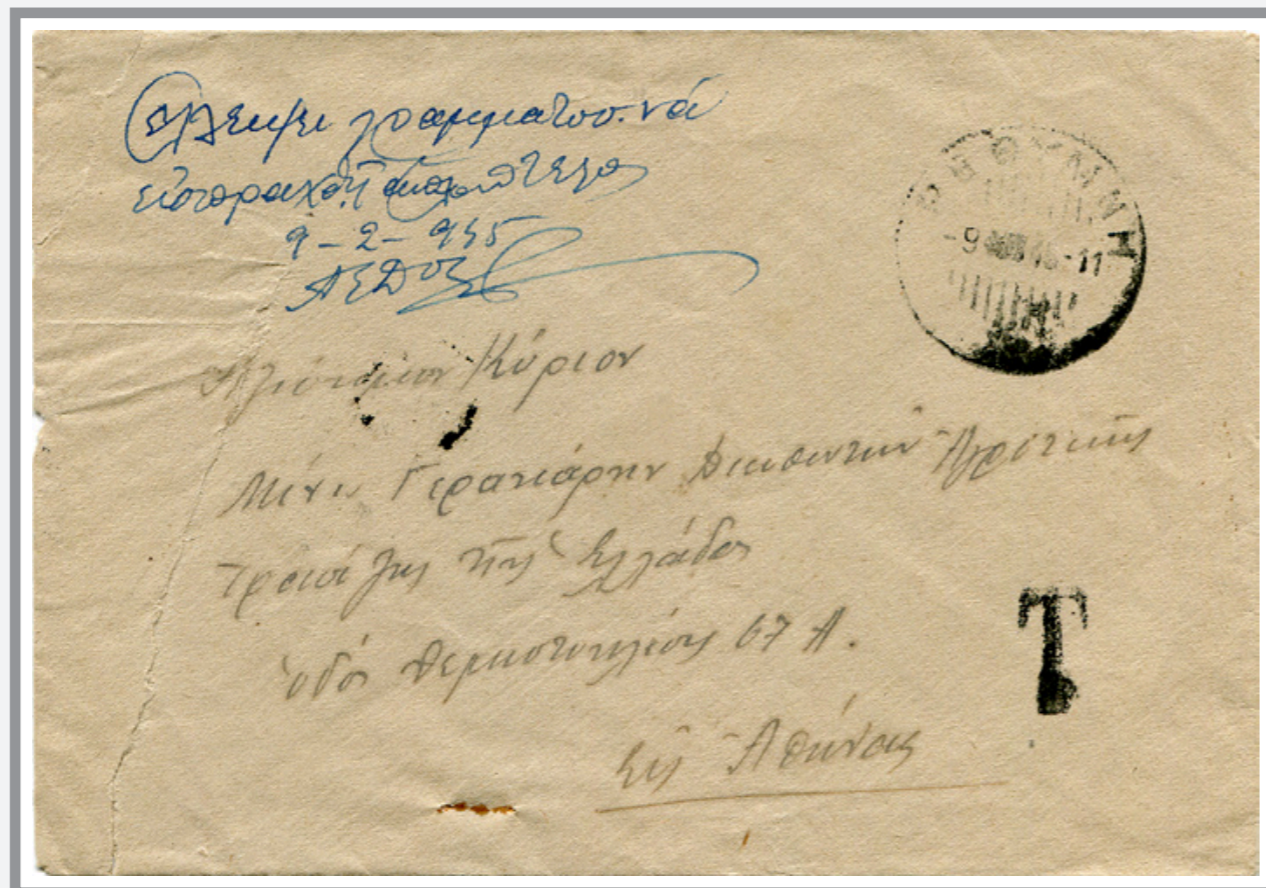 Ελλείψει γραμματοσ. νά
εἰσπραχθῇ ἁπλοῦν τέλος
9-2-945
ΡΕΘΥΜΝΗ
-9 45-11
Ἀξιότιμον Κύριον
Γερακάρην Διευθυντήν Ἀγροτικῆς
Τραπέζης τῆς Ἑλλάδος
ὁδός Θεμιστοκλέους 67 Α.
Εἰς Ἀθήνας
T